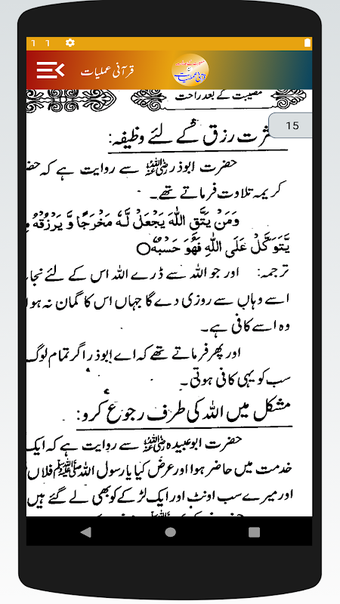 1 1
قرآنی عملیات
مصیبت کے بعد راحت
15
ثرت رزق کے لئے وظیفہ:
حضرت ابوذر رضی اللہ عنہ سے روایت ہے کہ حضو
کریمہ تلاوت فرماتے تھے۔
وَمَنْ يَتَّقِ اللّٰهَ يَجْعَلْ لَّهٗ مَخْرَجًا وَّ يَرْزُقْهُ مِ
يَّتَوَكَّلْ عَلَى اللّٰهِ فَهُوَ حَسْبُهٗ
ترجمہ: اور جو اللہ سے ڈرے اللہ اس کے لئے نجا
اسے وہاں سے روزی دے گا جہاں اس کا گمان نہ ہو ا
وہ اسے کافی ہے۔
اور پھر فرماتے تھے کہ اے ابوذر اگر تمام لوگ
سب کو یہی کافی ہوتی۔
مشکل میں اللہ کی طرف رجوع کرو:
حضرت ابو عبیدہ رضی اللہ عنہ سے روایت ہے کہ ایک
خدمت میں حاضر ہوا اور عرض کیا یا رسول اللہ ﷺ فلاں
اور میرے سب اونٹ اور ایک لڑکے کو بھی لے گئے ہیں